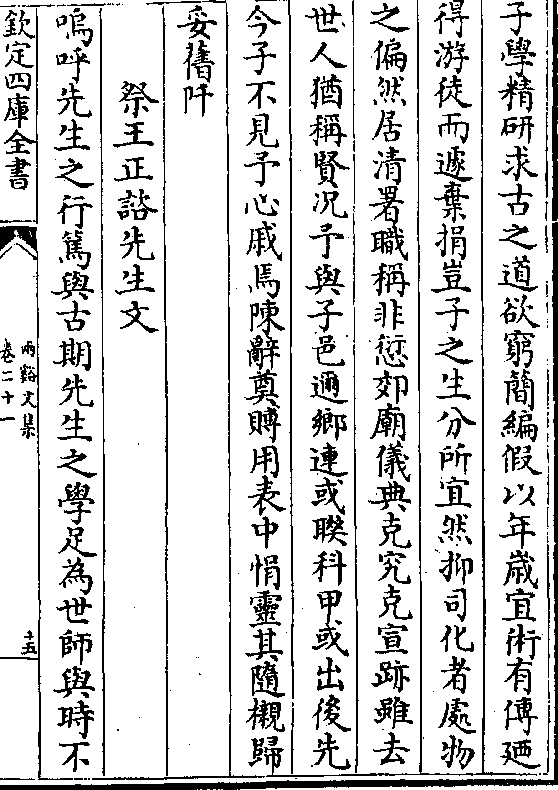 子學精研求古之道欲窮簡編假以年嵗宜術有傳廼
得游徒而遽棄捐豈子之生分所宜然抑司化者處物
之偏然居清署職稱非愆郊廟儀典克究克宣跡雖去
世人猶稱賢况予與子邑邇鄉連或聨科甲或出後先
今子不見予心戚焉陳辭奠賻用表中悁靈其隨櫬歸
妥舊阡
祭王正諮先生文
嗚呼先生之行篤與古期先生之學足為世師與時不
欽定四庫全書
兩谿文集
卷二十一
十五